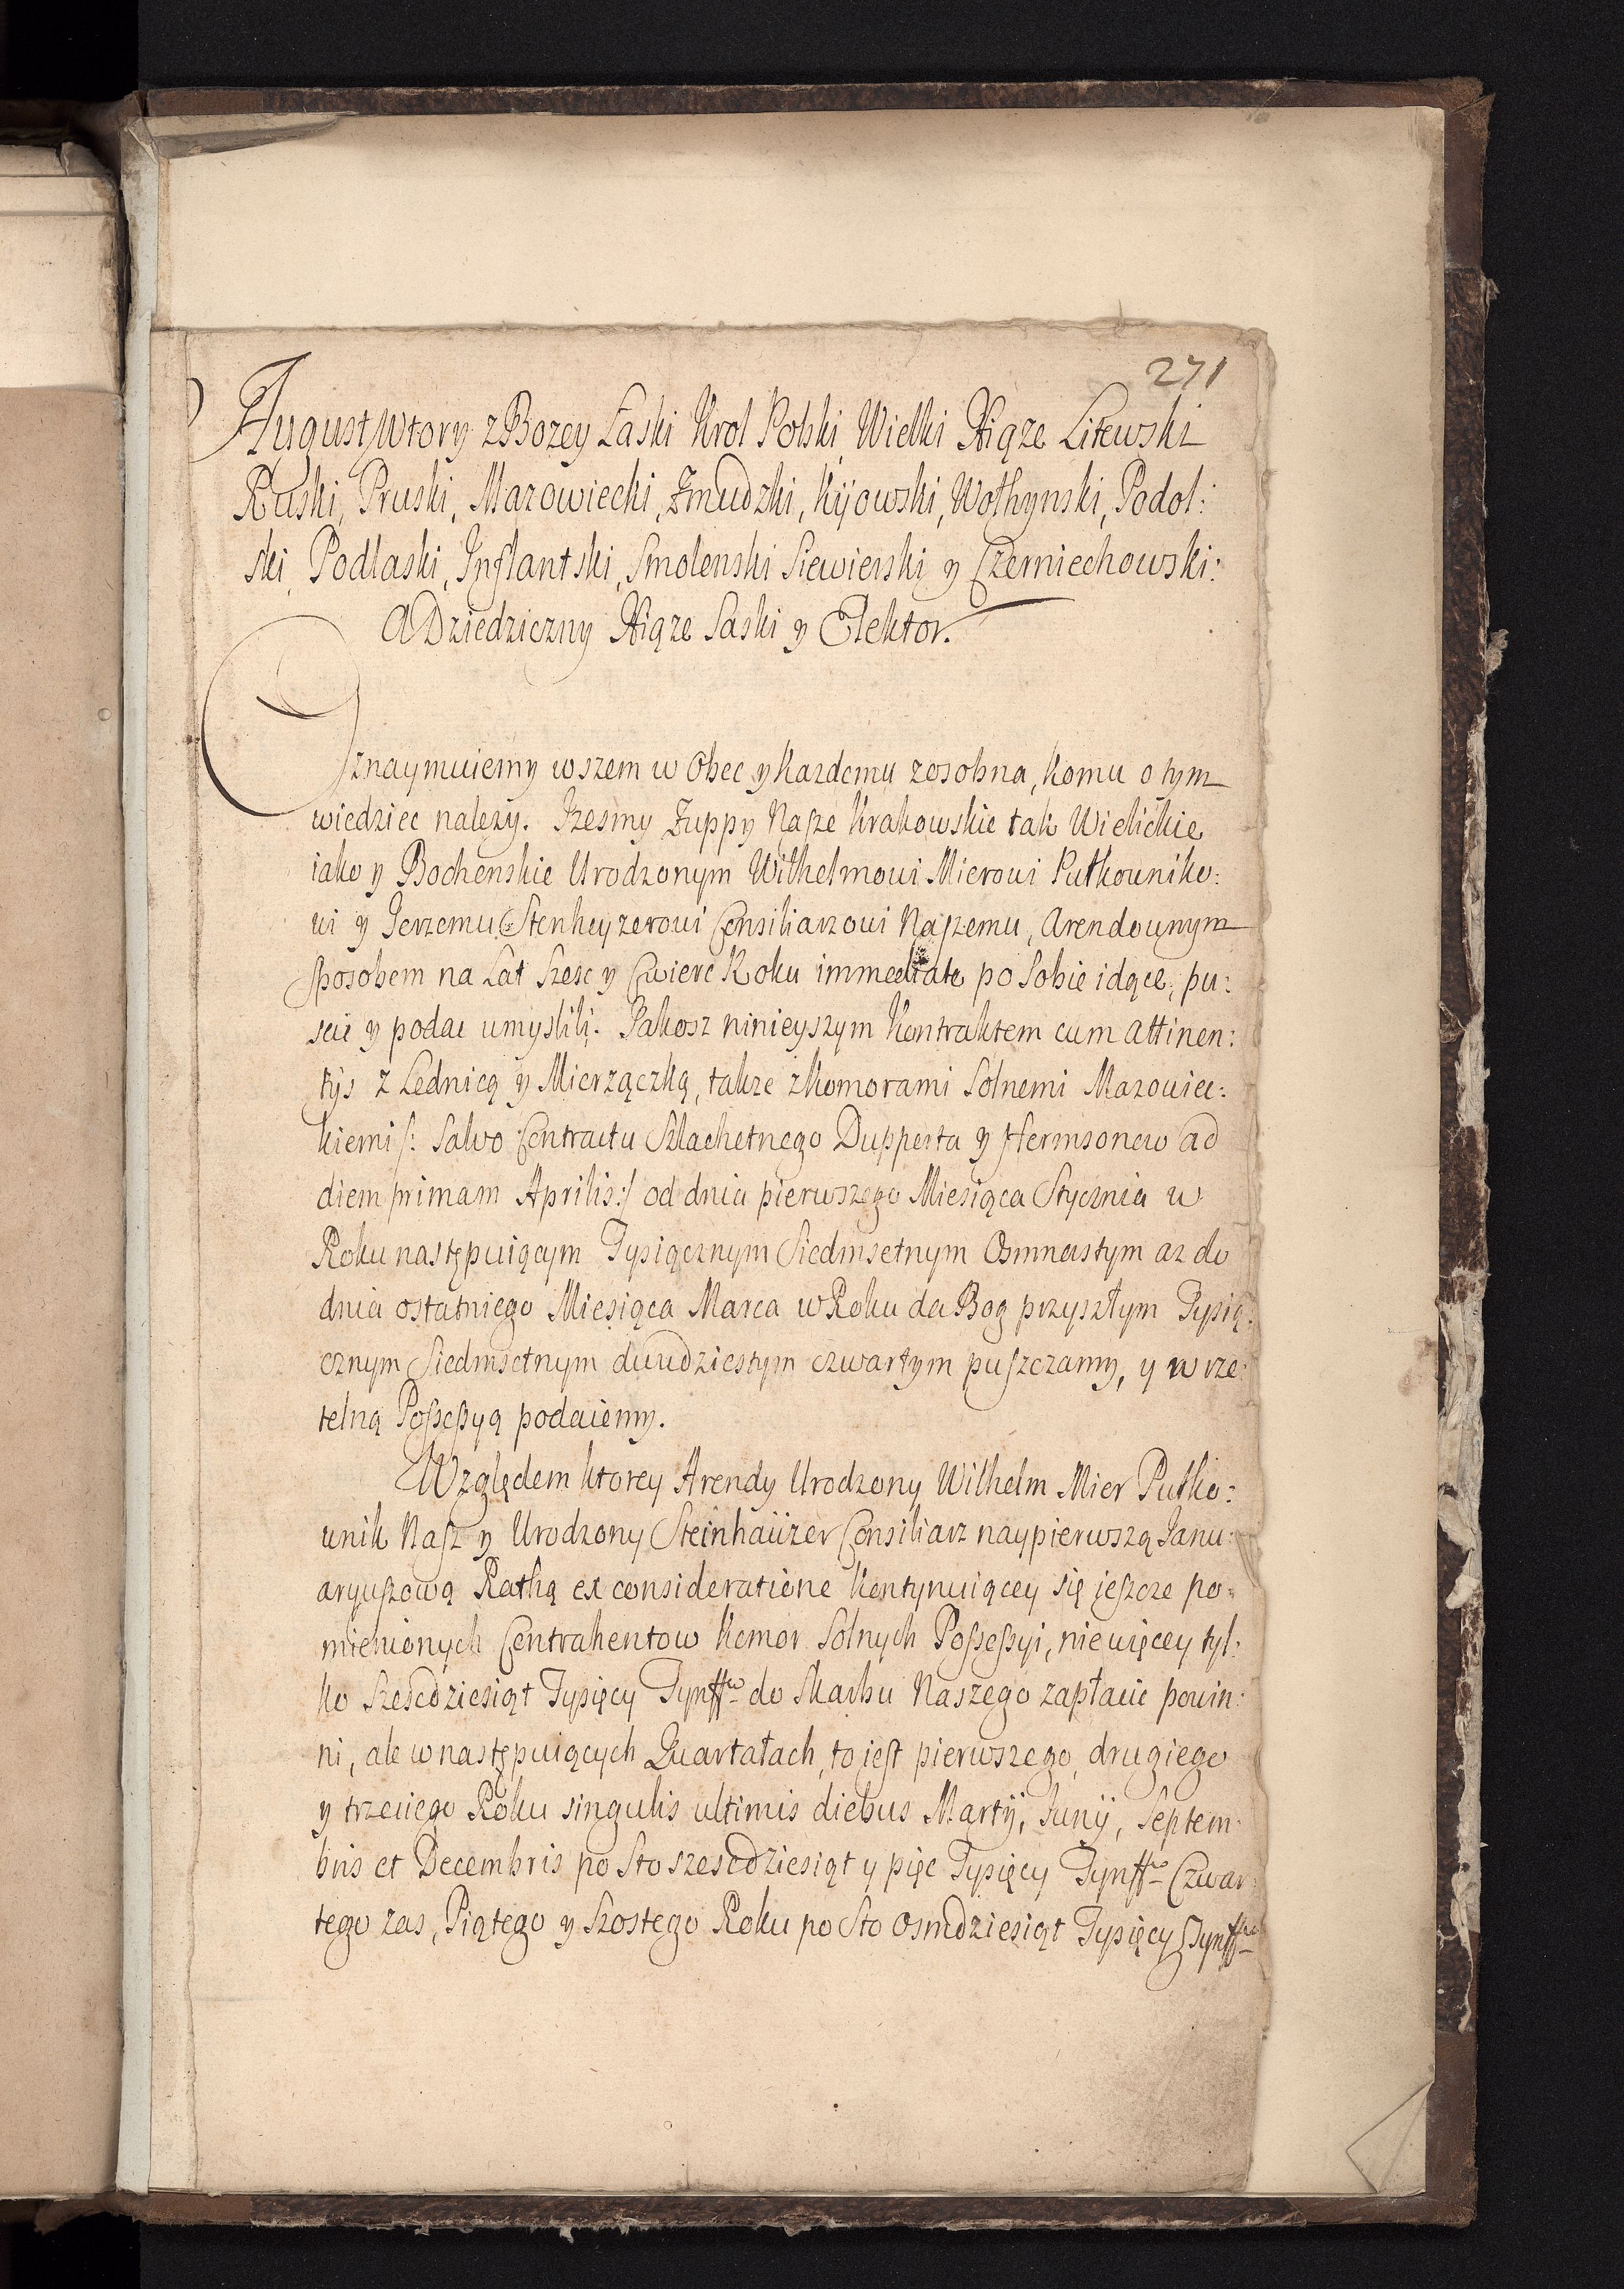 271
August Wtory z Bozey Łaski Krol Polski, Wielki Xiąze Litewski
Ruski, Pruski, Mazowiecki, Zmudzki, Kijowski, Wołhynski, Podol:
ski, Podlaski, Inflantski, Smolenski Siewierski y Czerniechowski:
A Dziedziczny Xiąze Saski y Elektor.
Oznaymuiemy wszem w Obec y kazdemu zosobna, komu o tym
wiedziec nalezy. Izesmy Zuppy Nasze Krakowskie tak Wielickie
iako y Bochenskie Urodzonym Wilhelmowi Mierowi Pułkowniko:
wi y Jerzemu Stenheyzerowi Consiliarzowi Naszemu, Arendownym
sposobem na Lat Szesc y Cwierc Roku immediate po Sobie idące, pu:
scic y podac umyslili. Jakosz ninieyszym Kontraktem cum attinen:
tijs z Lednicą y Mierzączką, takze z komorami Solnemi Mazowiec:
kiemi /: Salvo Contractu Szlachetnego Dupperta y Hermsonow ad
diem primam Aprilis :/ od dnia pierwszego Miesiąca Stycznia w
Roku następuiącym Tysiącznym Siedmsetnym Osmnastym az do
dnia ostatniego Miesiąca Marca w Roku da Bog przyszłym Tysią:
cznym Siedmsetnym dwudziestym czwartym puszczamy, y w rze:
telną Possessyą podaiemy.
Względem ktorey Arendy Urodzony Wilhelm Mier Pułko:
wnik Nasz y Urodzony Steinhaüzer Consiliarz naypierwszą Janu:
aryuszową Rathą ex consideratione kontynuiącey się ieszcze po:
mienionych Contrahentow Komor Solnych Possessyi, niewięcey tyl:
ko Szescdziesiąt Tysięcy Tynffw do Skarbu Naszego zapłacic powin:
ni, ale w następuiących Quartałach, to iest pierwszego, drugiego
y trzeciego Roku singulis ultimis diebus Martij, Junij, Septem:
bris et Decembris po Sto szescdziesiąt y pięc Tysięcy Tynffw Czwar:
tego zas, Piątego y Szostego Roku po Sto Osmdziesiąt Tysięcy Tynffw